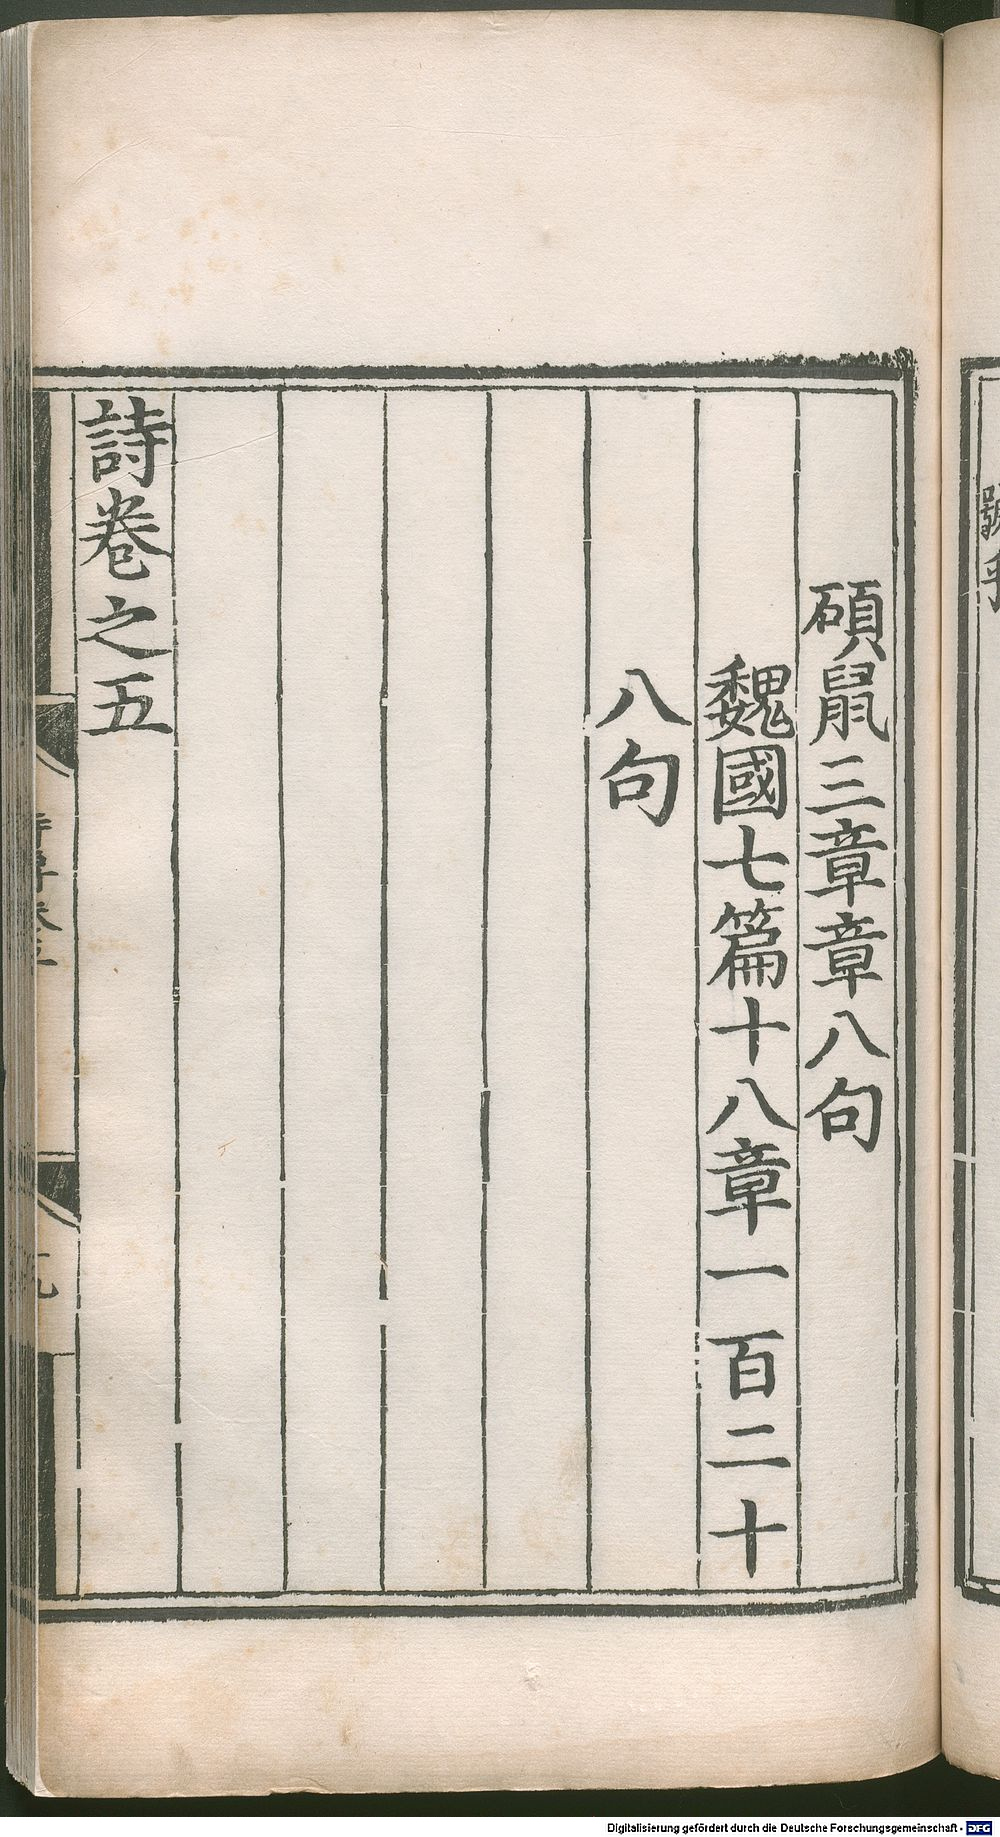 碩鼠三章章八句
魏國七篇十八章一百二十
八句
詩卷之五
Digitalisierung gefördert durch die Deutsche Forschungsgemeinschaft - DFG